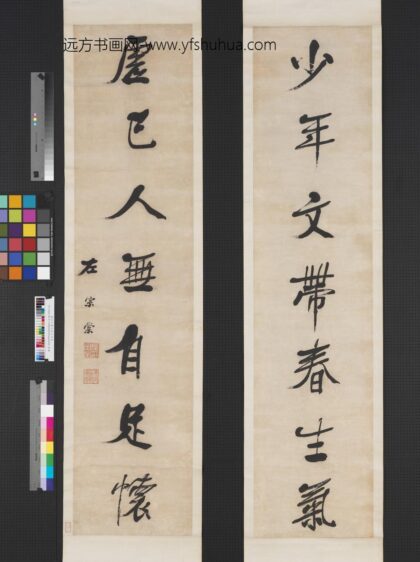 远方书画网-www.yfshuhua.com
少年文帶春生氣
虛已人無自足懷
左宗棠